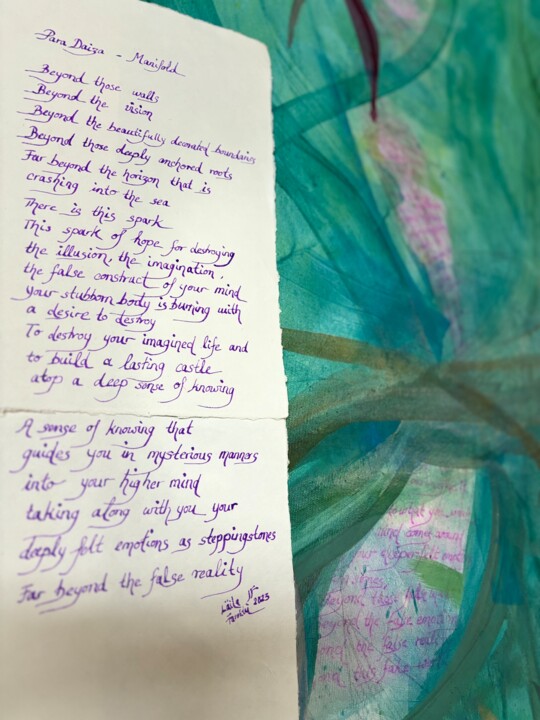 Para Daiza - Manifold
Beyond those walls
Beyond the vision
Beyond the beautifully decorated boundaries
Beyond those deeply anchored roots
Far beyond the horizon that is
crashing into the sea
There is this spark
This spark of hope for destroying
the illusion, the imagination,
the false construct of your mind
your stubborn body is burning with
a desire to destroy
To destroy your imagined life and
to build a lasting castle
atop a deep sense of knowing
A sense of knowing that
guides you in mysterious manners
into your higher mind
taking along with you your
deeply felt emotions as steppingstones
Far beyond the false reality
2023
Beyond those
beyond the false
the false
this